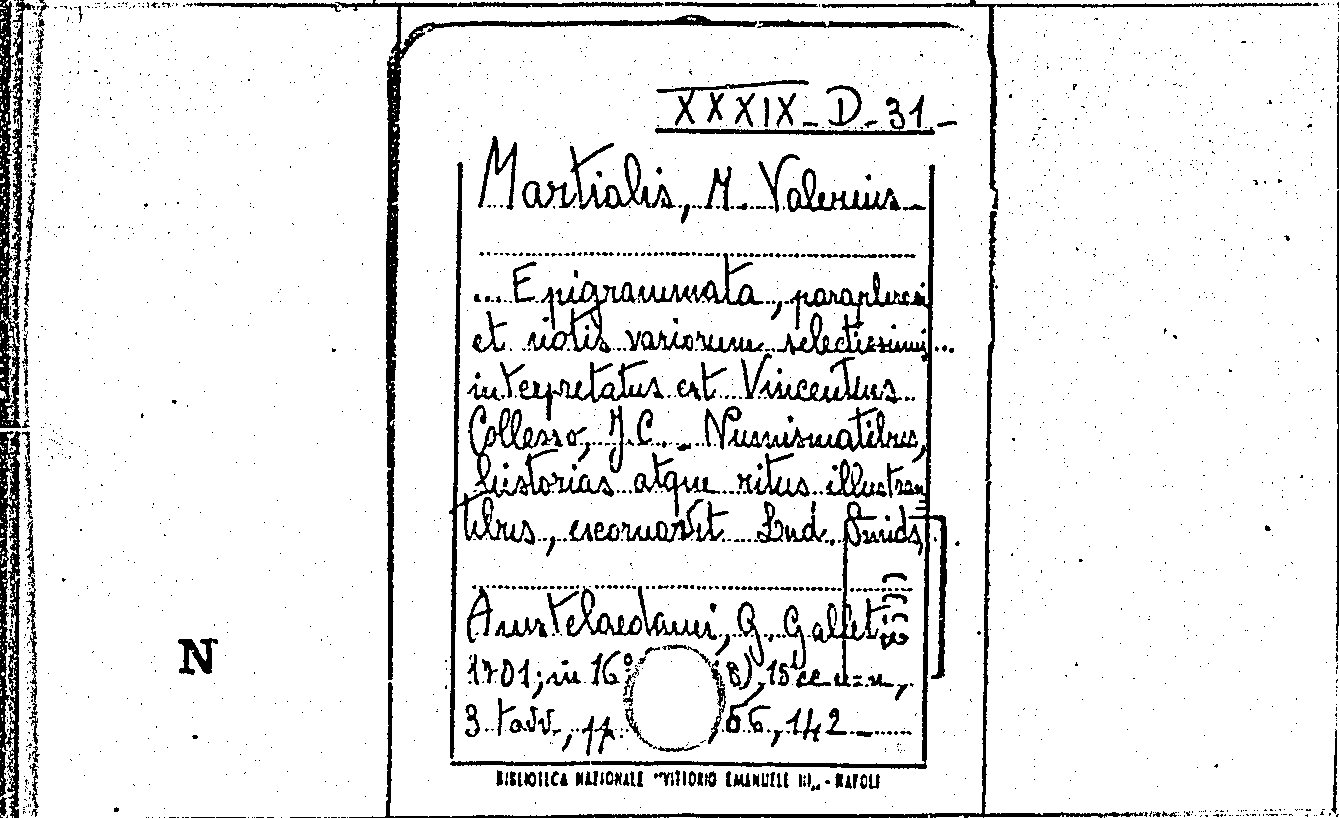 XXXIX - D - 31 -
Martialis, M. Valerius -
... Epigrammata, paraphrasi
et notis variorum selectissimis...
interpretatus est Vincentius
Collesso, J.C. - Numismatibus,
historias atque ritus illustran
tibus, exornavit Lud. Smids,
Amstelaedami, G. Gallet
1701; in 16° (8), 15 cc n.n.,
3 tavv., pp 56, 142 -
N
BIBLIOTECA NAZIONALE "VITTORIO EMANUELE III" - NAPOLI